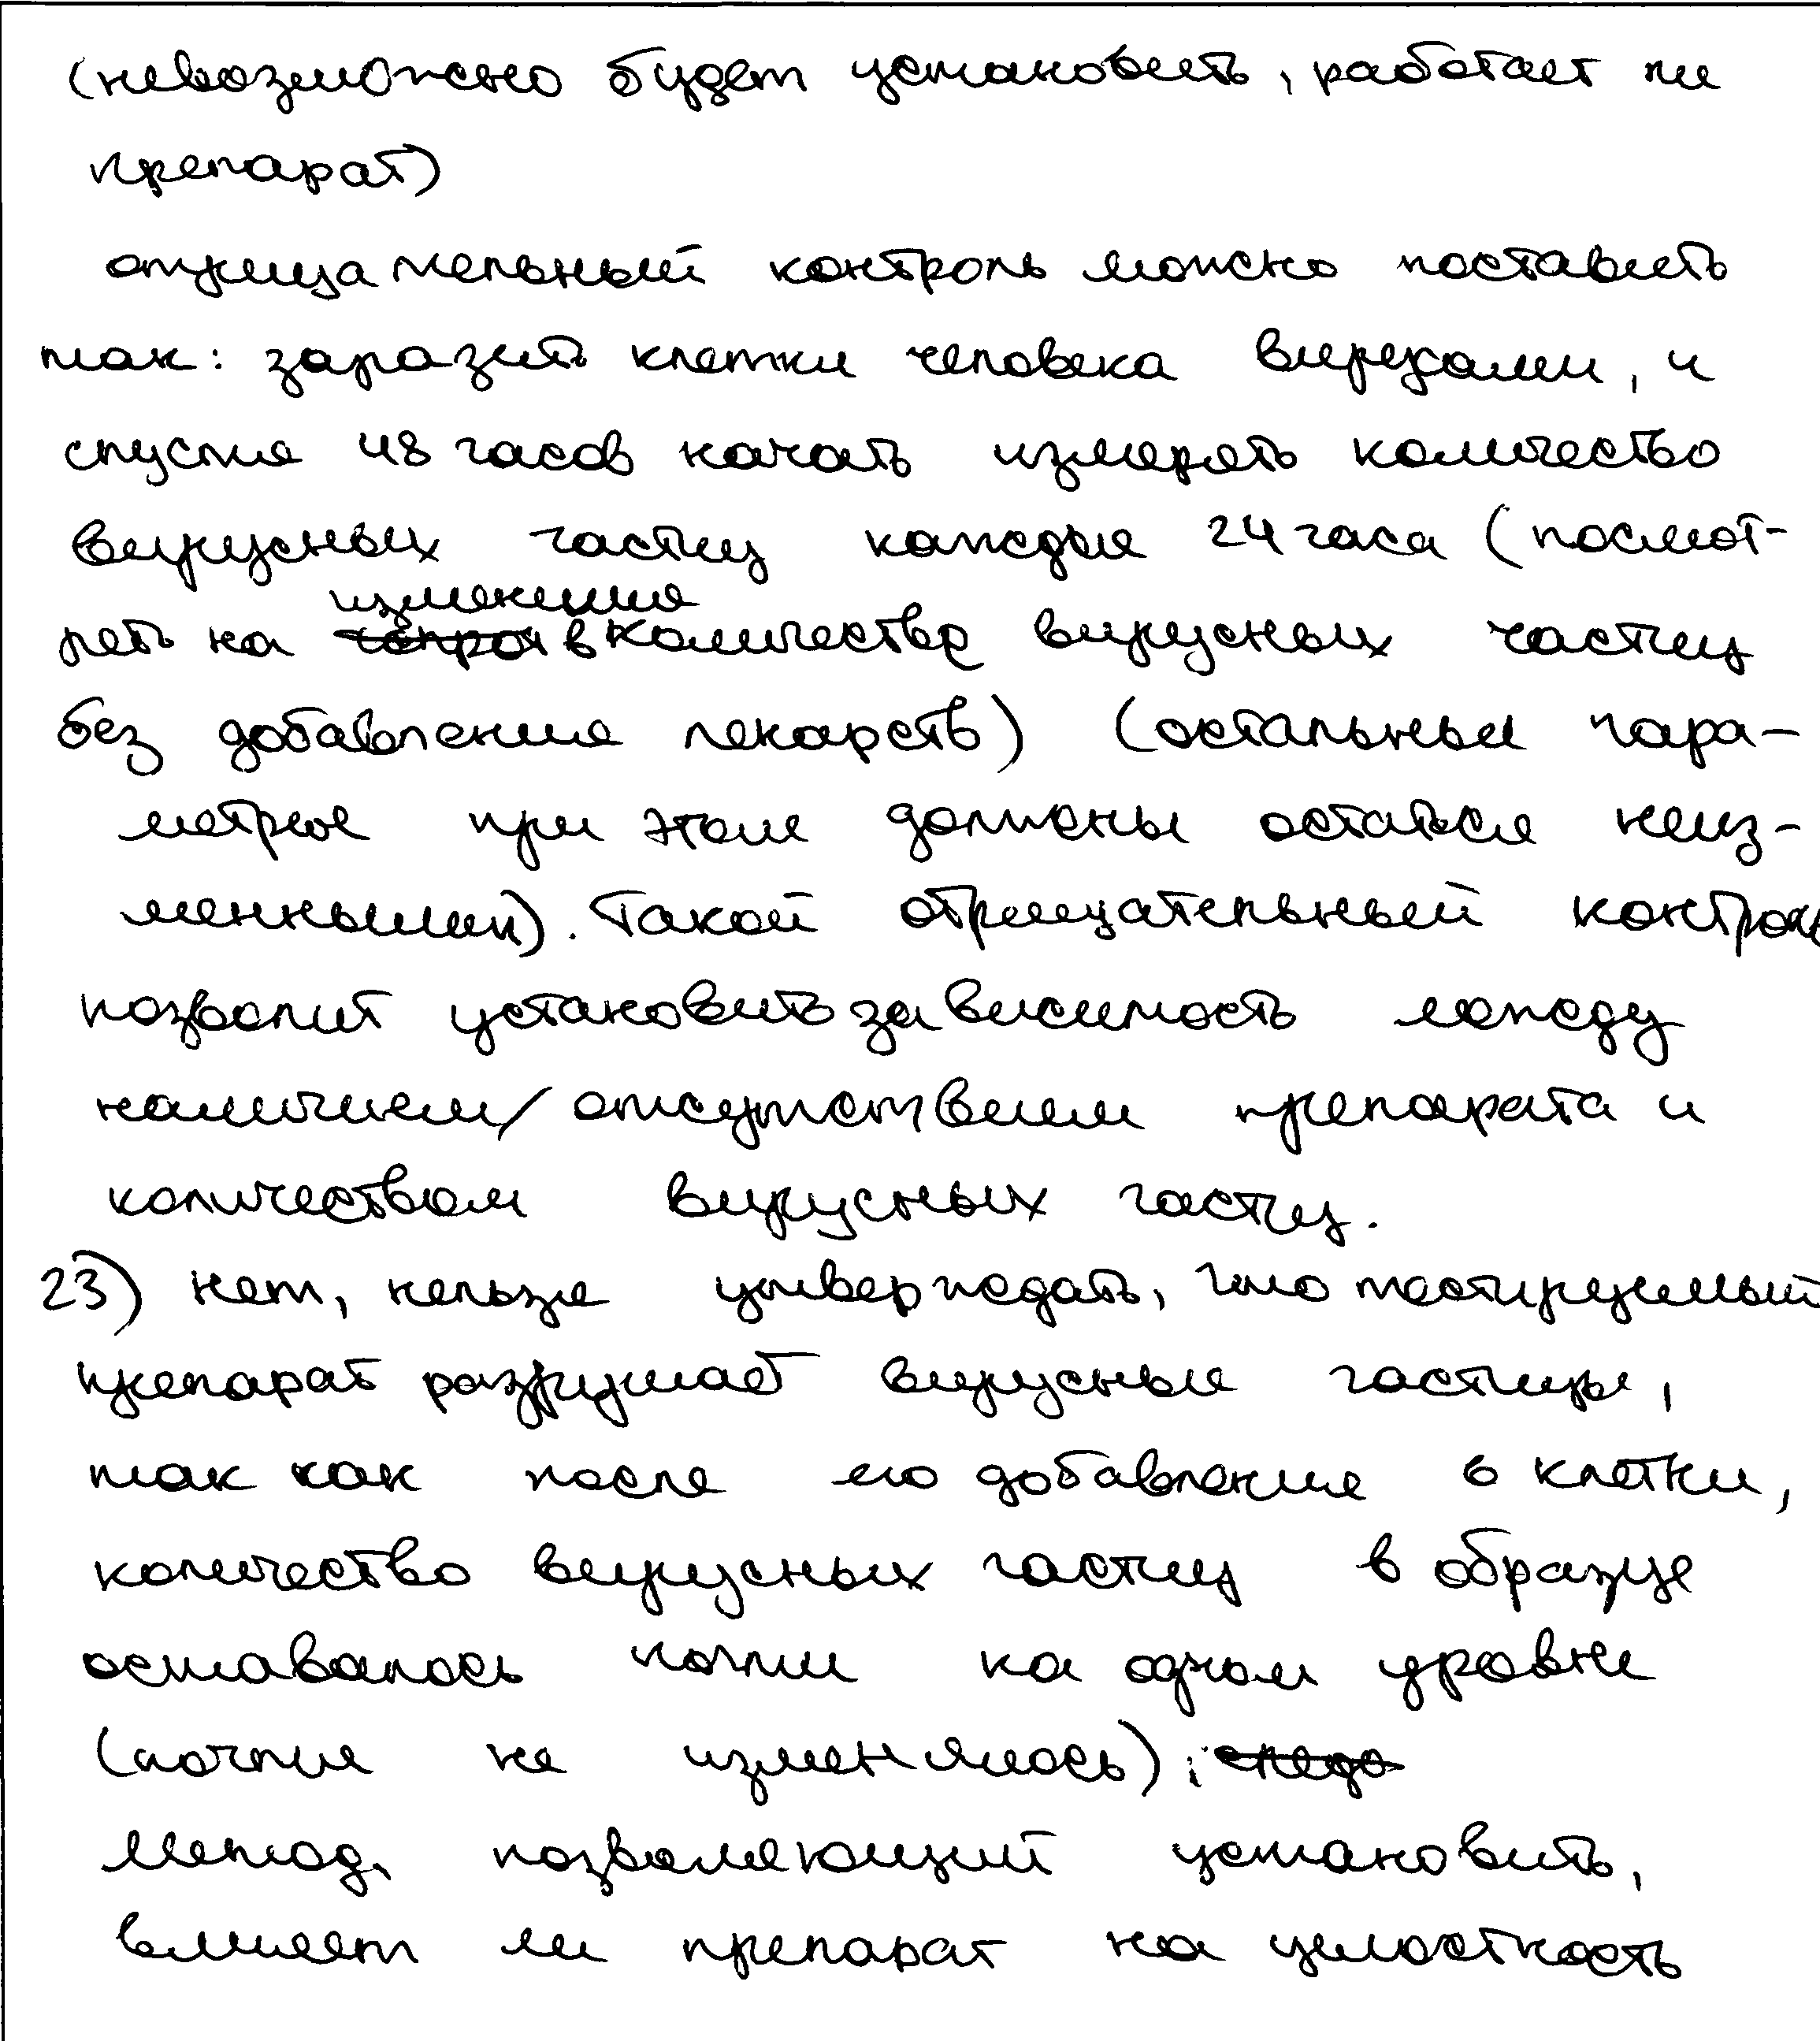 (невозможно будет установить, работает ли
препарат)
отрицательный контроль можно поставить
так: заразить клетки человека вирусами, и
спустя 48 часов начать измерять количество
вирусных частиц каждые 24 часа (посмот-
реть на изменение в количестве вирусных частиц
без добавления лекарств) (остальные пара-
метры при этом должны остаться неиз-
менными). Такой отрицательный контроль
позволит установить зависимость между
наличием/отсутствием препарата и
количеством вирусных частиц.
23) нет, нельзя утверждать, что тестируемый
препарат разрушает вирусные частицы,
так как после его добавления в клетки,
количество вирусных частиц в образце
оставалось почти на одном уровне
(почти не изменялось);
метод, позволяющий установить,
влияет ли препарат на целостность